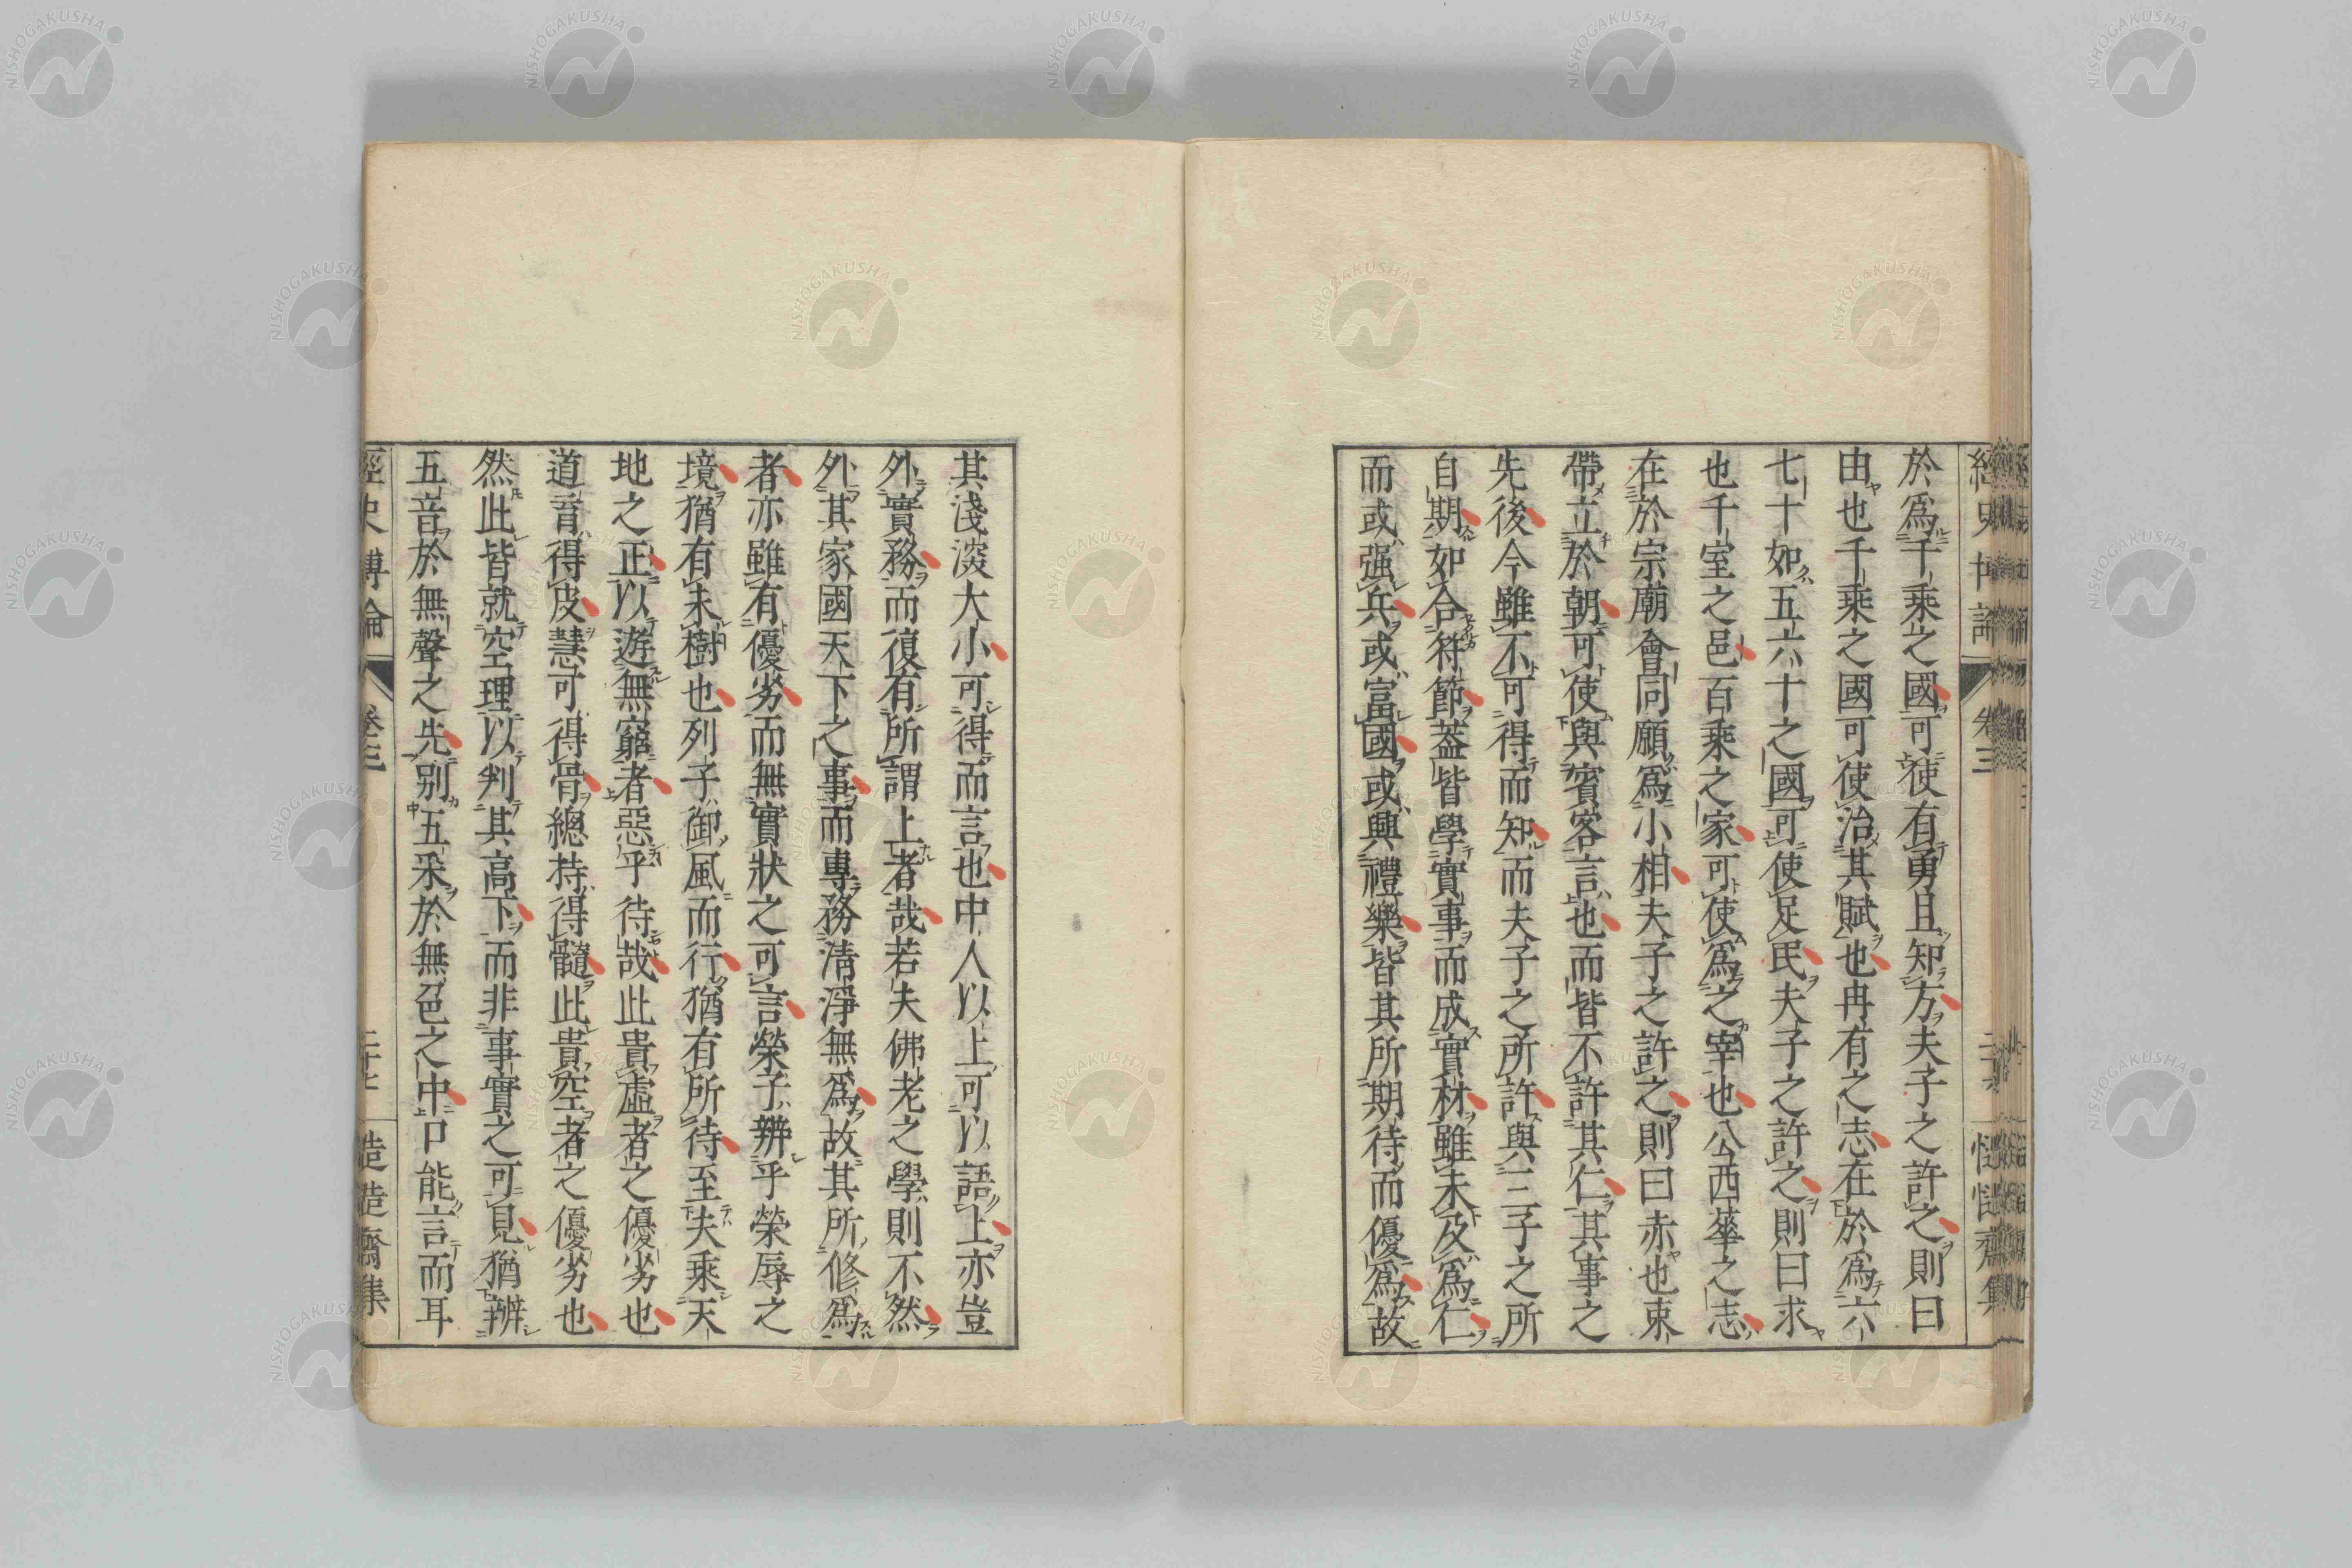 於爲千乘之國可使有勇且知方夫子之許之則曰
由也千乘之國可使治其賦也冉有之志在於爲六
七十如五六十之國可使足民夫子之許之則曰求
也千室之邑百乘之家可使爲之宰也公西華之志
在於宗廟會同願爲小相夫子之許之則曰赤也束
帶立於朝可使與賓客言也而皆不許其仁其事之
先後今雖不可得而知而夫子之所許與三子之所
自期如合符節蓋皆學實事而成實材雖未及爲仁
而或强兵或富國或興禮樂皆其所期待而優爲故
其淺淡大小可得而言也中人以上可以語上亦豈
外實務而復有所謂上者哉若夫佛老之學則不然
外其家國天下之事而專務清淨無爲故其所修爲
者亦雖有優劣而無實狀之可言榮子辨乎榮辱之
境猶有未樹也列子御風而行猶有所待至夫乘天
地之正以遊無窮者惡乎待哉此貴虛者之優劣也
道育得皮慧可得骨總持得髓此貴空者之優劣也
然此皆就空理以判其高下而非事實之可見猶辨
五音於無聲之先别五采於無色之中口能言而耳
經史博論 卷三
NISHOGAKUSHA